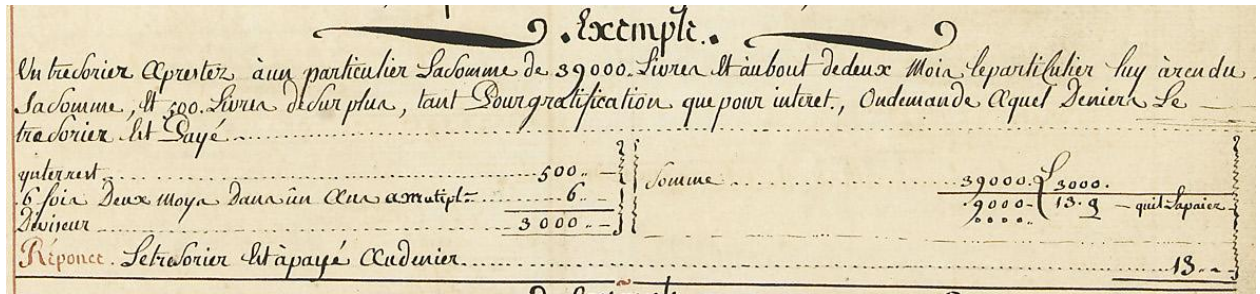 .Exemple..
Un tresorier Aprestez à un particulier La Somme de 39000. Livres Et au bout de deux Mois le particulier luy à rendu
sa somme, Et 500. Livres de Surplus, tant Pour gratification que pour interet., On demande A quel Deniers Le
tresorier Est Payé
ynterrest 500..
6 fois Deux Moys Dans ûn An amutipl. 6..
Diviseur 3000..
Somme 39000. 3000.
9000- 13. — quil la paiez
0000..
Réponce. Le tresorier Est à payé Au denier. 13..